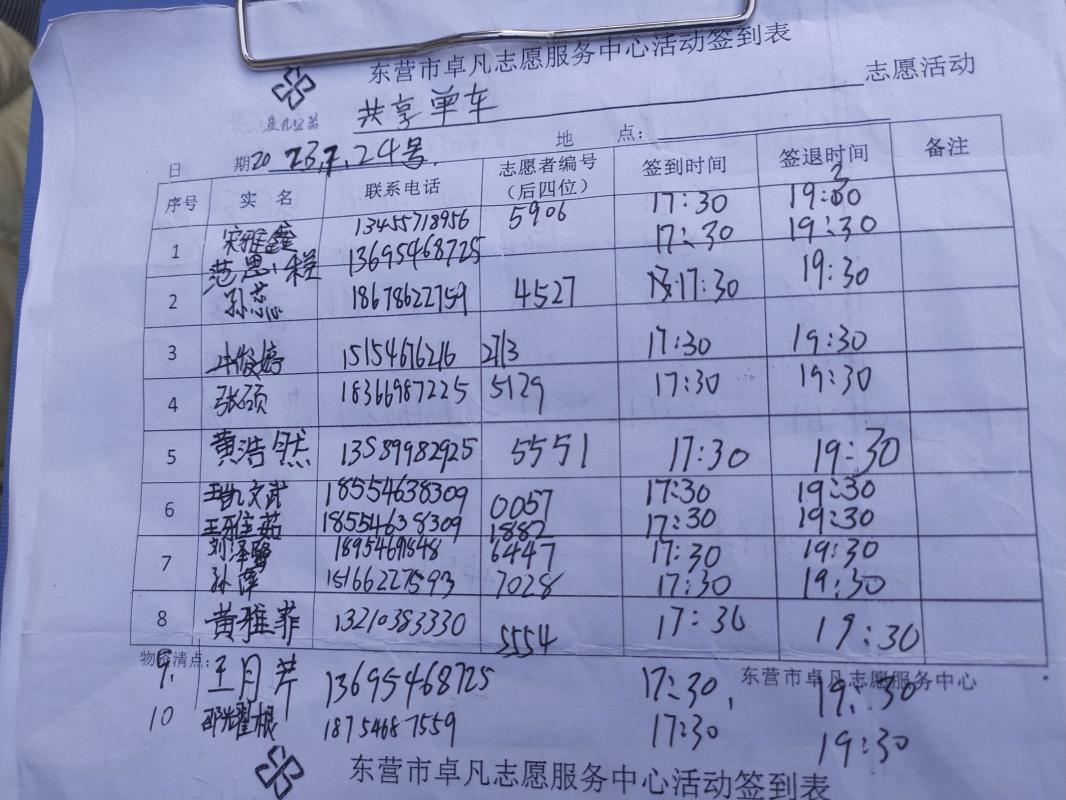 东营市卓凡志愿服务中心活动签到表
共享单车 志愿活动
卓凡公益
日 期2023.7.24号. 地 点:
序号 实 名 联系电话 志愿者编号（后四位） 签到时间 签退时间 备注
1 宋雅鑫 13455718956 5906 17:30 19:30
范思 13695468725 17:30 19:30
2 孙蕊 18678622759 4527 17:30 19:30
3 牛俊婷 15154676216 2713 17:30 19:30
4 张硕 18366987225 5129 17:30 19:30
5 黄浩然 13589982925 5551 17:30 19:30
6 王凯文武 18554638309 0057 17:30 19:30
王雅茹 18554638309 1882 17:30 19:30
7 刘泽鹭 6447 17:30 19:30
孙萍 15166227593 7028 17:30 19:30
8 黄雅菲 13210383330 5554 17:30 19:30
物资清点: 东营市卓凡志愿服务中心
9. 王月芹 13695468725 17:30, 19:30
10 邵耀根 18754687559 17:30 19:30
东营市卓凡志愿服务中心活动签到表